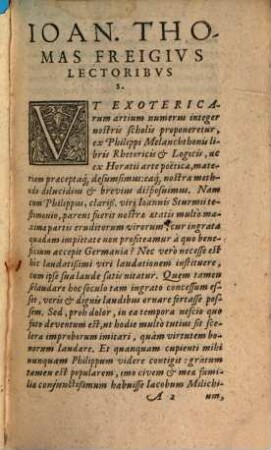 IOAN. THO-
MAS FREIGIVS
LECTORIBVS
S.
VT EXOTERICA-
rum artium numerus integer
nostris scholis proponeretur,
ex Philippi Melanchthonis li-
bris Rhetoricis & Logicis, ac
ex Horatii arte poëtica, mate-
riam præceptaq́; desumsimus: eaq́; nostra metho-
dis dilucidius & brevius disposuimus. Nam
cum Philippus, clariss. viri Ioannis Sturmii te-
stimonio, parens fuerit nostra ætatis multo ma-
xima partis eruditorum virorum: cur ingrata
quadam impietate non profiteamur à quo bene-
ficium accepit Germania? Nec vero necesse est
hic laudatissimi viri laudationem instituere,
cum ipse sua laude satis nitatur. Quem tamen
si laudare hoc sæculo tam ingrato concessum es-
set, veris & dignis laudibus ornare fortasse pos-
sem. Sed, proh dolor, in ea tempora nescio quo
fato deventum est, ut hodie multò tutius sit sce-
lera improborum imitari, quàm virtutem bo-
norum laudare. Et quanquam cupienti mihi
nunquam Philippum videre contigit: gratum
tamen est popularem, imo civem & mea fami-
lia conjunctissimum habuisse Iacobum Milichi-
A 2 um,